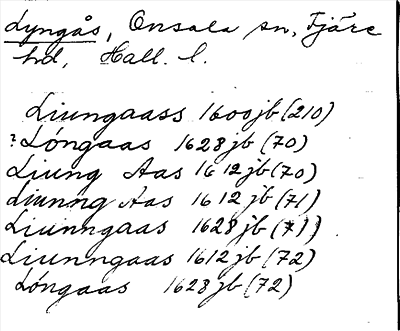 Lyngås, Onsala sn, Fjäre
hd, Hall. l.
Liungaass 1600jb (210)
?Lóngaas 1628jb (70)
Liung Aas 1612jb (70)
Liunng Aas 1612jb (71)
Liunngaas 1628jb (71)
Liunngaas 1612jb (72)
Lóngaas 1628jb (72)